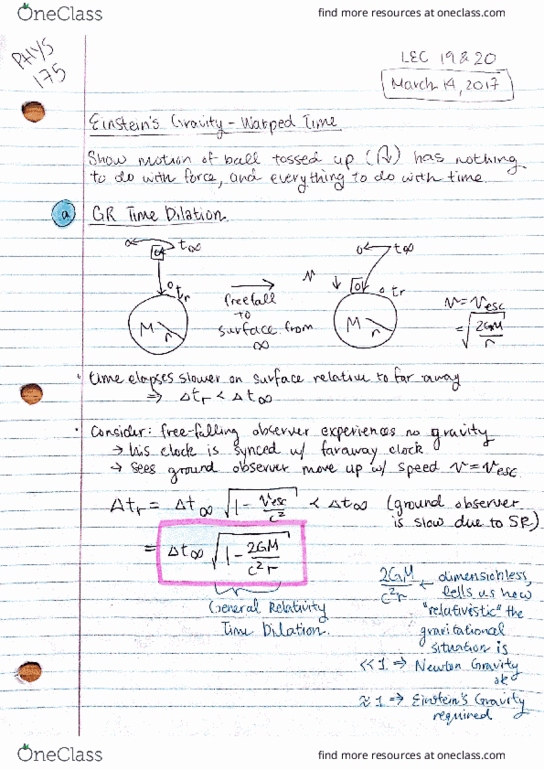 OneClass
find more resources at oneclass.com
PHYS
175
LEC 19 & 20
March 14, 2017
Einstein's Gravity - Warped Time
Show motion of ball tossed up ( ) has nothing
to do with force, and everything to do with time.
a GR Time Dilation
t∞
tr
M
r
freefall
to
surface from
∞
t∞
v
tr
M
r
v = vesc
= √(2GM/r)
• time elapses slower on surface relative to far away
⇒ Δtr < Δt∞
• Consider: free-falling observer experiences no gravity
→ his clock is synced w/ faraway clock
→ sees ground observer move up w/ speed v = vesc
Δtr = Δt∞ √(1 - vesc/c²) < Δt∞ (ground observer
is slow due to SR.)
= Δt∞ √(1 - 2GM/c²r)
General Relativity
Time Dilation.
2GM/c²r ← dimensionless,
tells us how
"relativistic" the
gravitational
situation is
<< 1 ⇒ Newton Gravity
ok
≈ 1 ⇒ Einstein's Gravity
required
OneClass
find more resources at oneclass.com